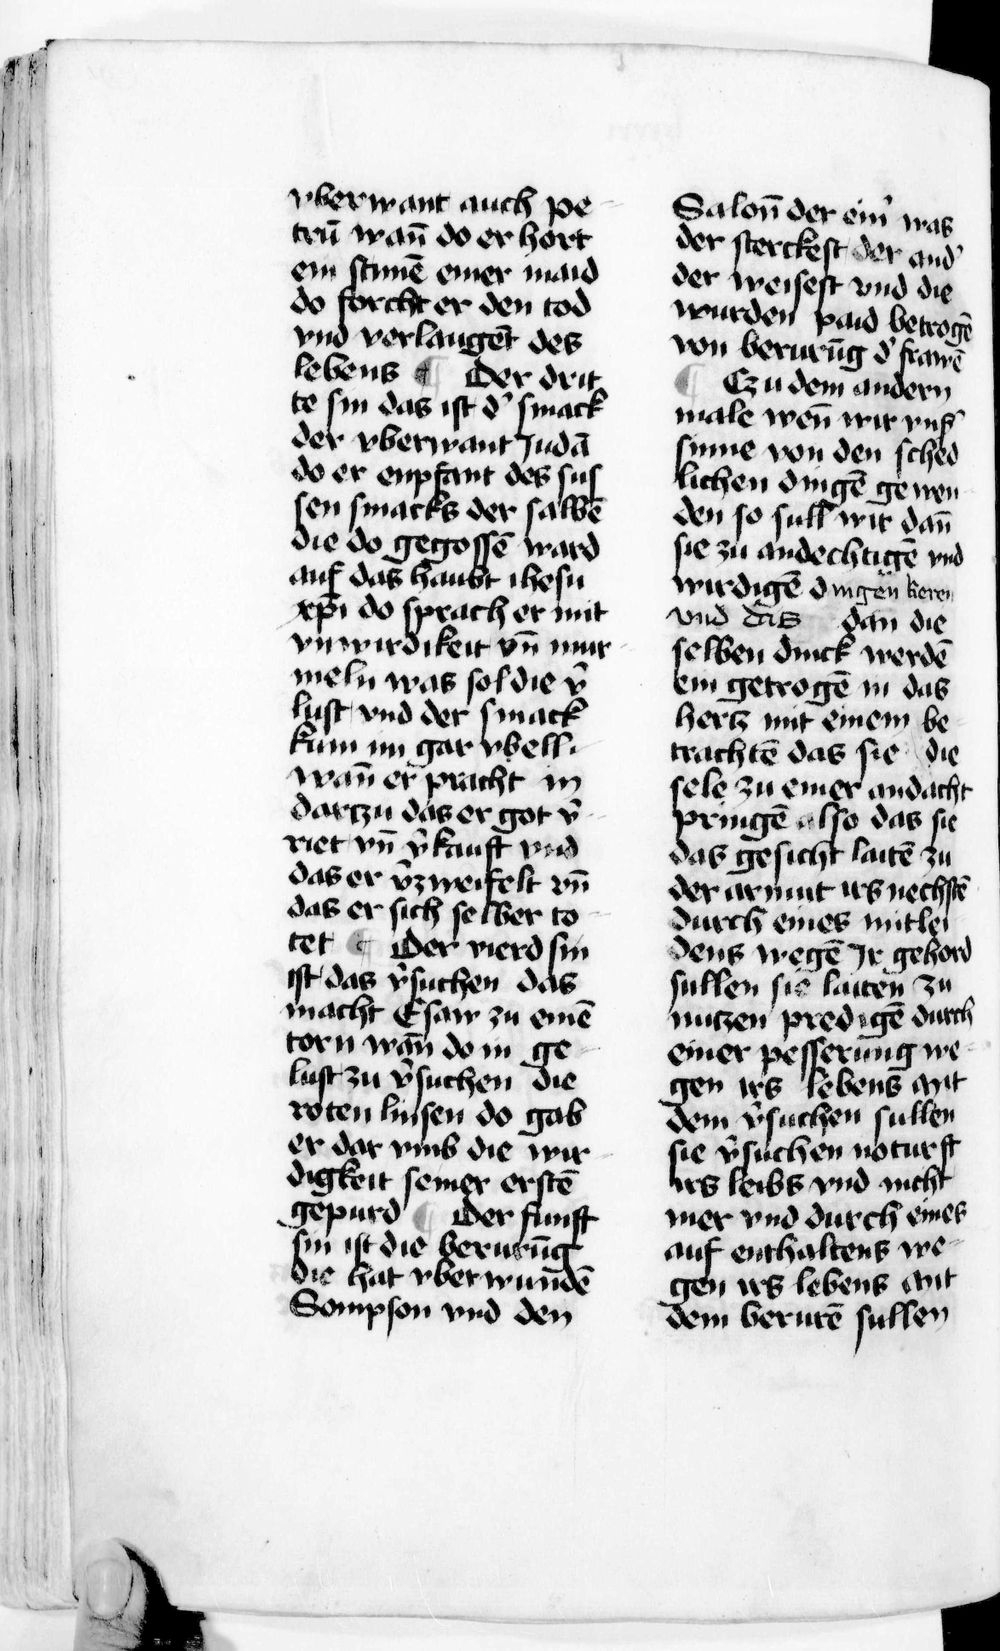 vberwant auch pe-
trū wan̄ do er hort
ein stimē einer maid
do forcht er den tod
vnd verlaugēt des
lebens ¶ Der drit
te sin das ist d' smack
der vberwant Judā
do er enpfant des sus
sen smacks der salbē
die do gegossē ward
auf das haubt ihesu
xp̄i do sprach er mit
vnwirdikeit vn̄ mur-
meln was sol die v̄
lust vnd der smack
kum im gar vbell.
wan̄ er pracht in
dartzu das er got v̄-
riet vn̄ v̄kauft vnd
das er v̄zweifelt vn̄
das er sich selber to-
tet ¶ Der vierd sin
ist das v̄suchen das
macht Esaw zu einē
torn wan̄ do in ge-
lust zu v̄suchen die
roten linsen do gab
er dar vmb die wir-
digkeit seiner erstē
gepurd ¶ Der funft
sin ist die berurūg
die hat vberwundē
Sompson vnd den
Salon̄ der ein' was
der sterckest der and'
der weisest vnd die
wurden paid betrogē
von berurūg d' frawē
¶ Czu dem andern
male wen̄ wir vns'
sinne von den sched
lichen dingē gewen-
den so sull wir dan̄
sie zu andechtigē vnd
wirdigē dingen keren
vnd das dan die
selben dinck werdē
ein getrogē in das
hertz mit einem be-
trachtē das sie die
sele zu einer andacht
pringē also das sie
das gesicht laitē zu
der armut irs nechstē
durch eines mitlei
dens wegē Jr gehord
sullen sie laiten zu
nutzen predigē durch
einer pesserung we-
gen irs lebens mit
dem v̄suchen sullen
sie v̄suchen noturft
irs leibs vnd nicht
mer vnd durch eines
auf enthaltens we-
gen irs lebens mit
dem berurē sullen